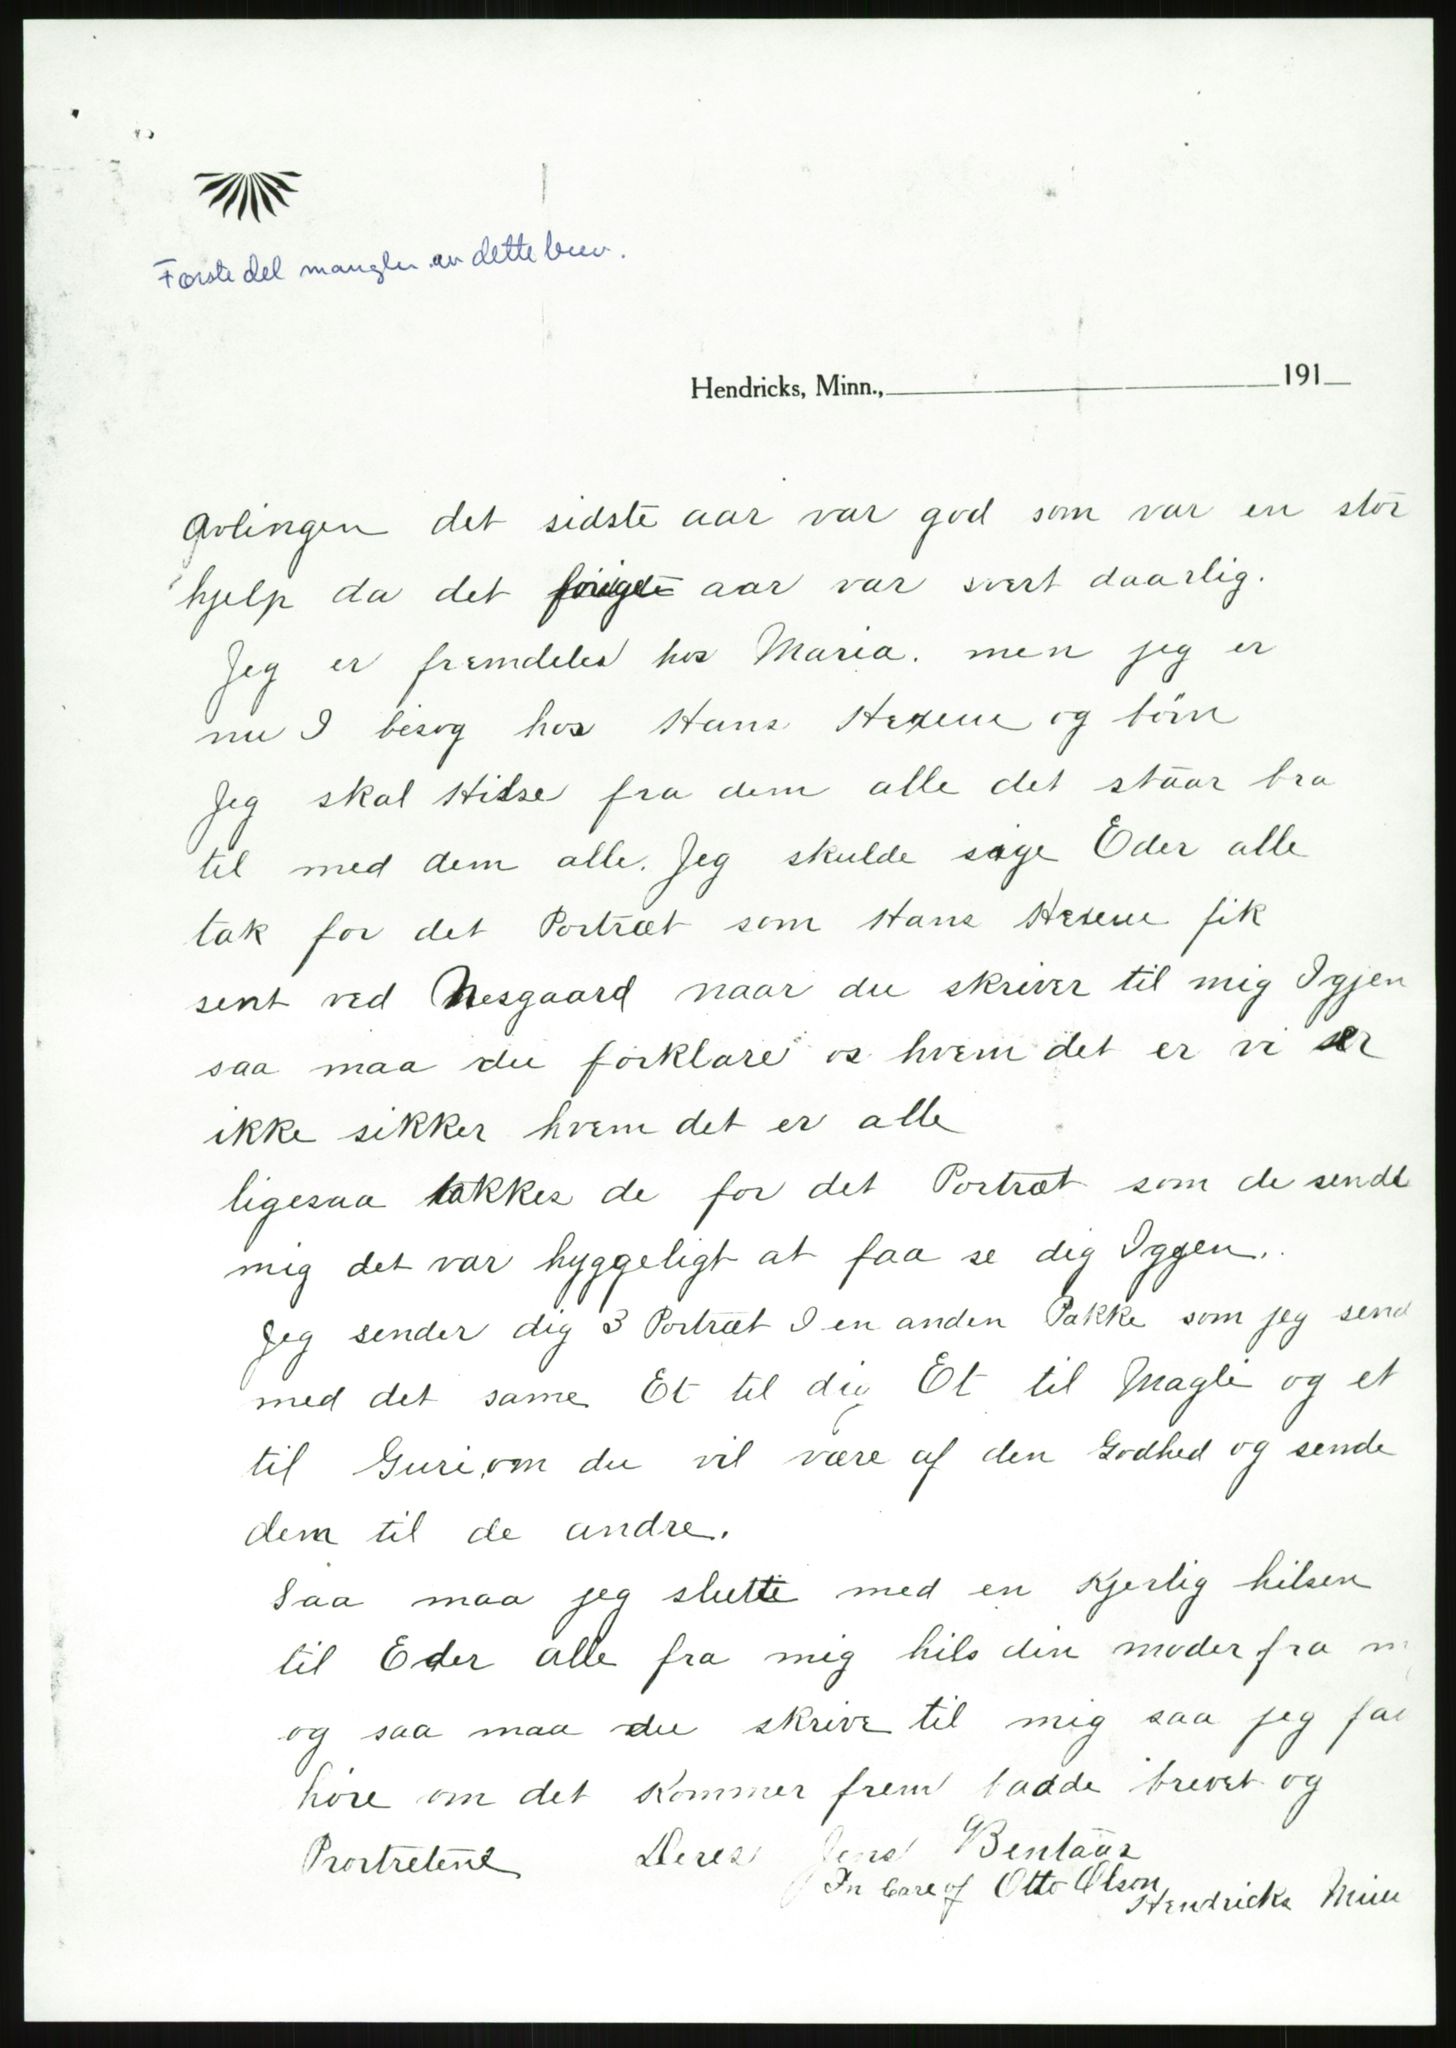 Første del mangler av dette brev.
Hendricks, Minn., 191
Avlingen det sidste aar var god som var en stor
hjelp da det forige aar var svert daarlig.
Jeg er fremdeles hos Maria. men jeg er
nu I besøg hos Hans Hexem og börn
Jeg skal Hilse fra dem alle det staar bra
til med dem alle. Jeg skulde sige Eder alle
tak for det Portræt som Hans Hexem fik
sent ved Nesgaard naar du skriver til mig Igjen
saa maa du forklare os hvem det er vi er
ikke sikker hvem det er alle
ligesaa takkes de for det Portræt som de sendte
mig det var hyggeligt at faa se dig Iggen.
Jeg sender dig 3 Portræt I en anden Pakke som jeg send
med det same Et til dig Et til Magli og et
til Guri, om du vil være af den Godhed og sende
dem til de andre.
Saa maa jeg slutte med en Kjerlig hilsen
til Eder alle fra mig hils din moder fra m
og saa maa du skrive til mig saa jeg faa
høre om det Kommer frem baade brevet og
Prortretene Deres Jens Bentaas
In Care of Otto Olson
Hendricks Minn